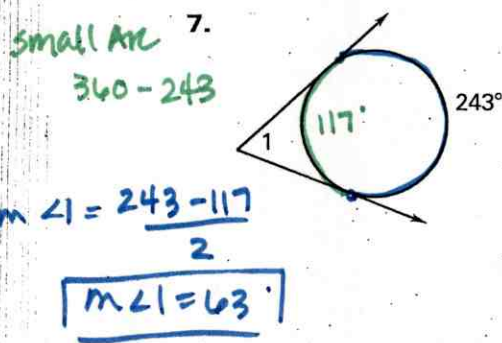 small Arc
7.
360 - 243
243°
117°
1
m <1 = 243 - 117
2
m<1 = 63°